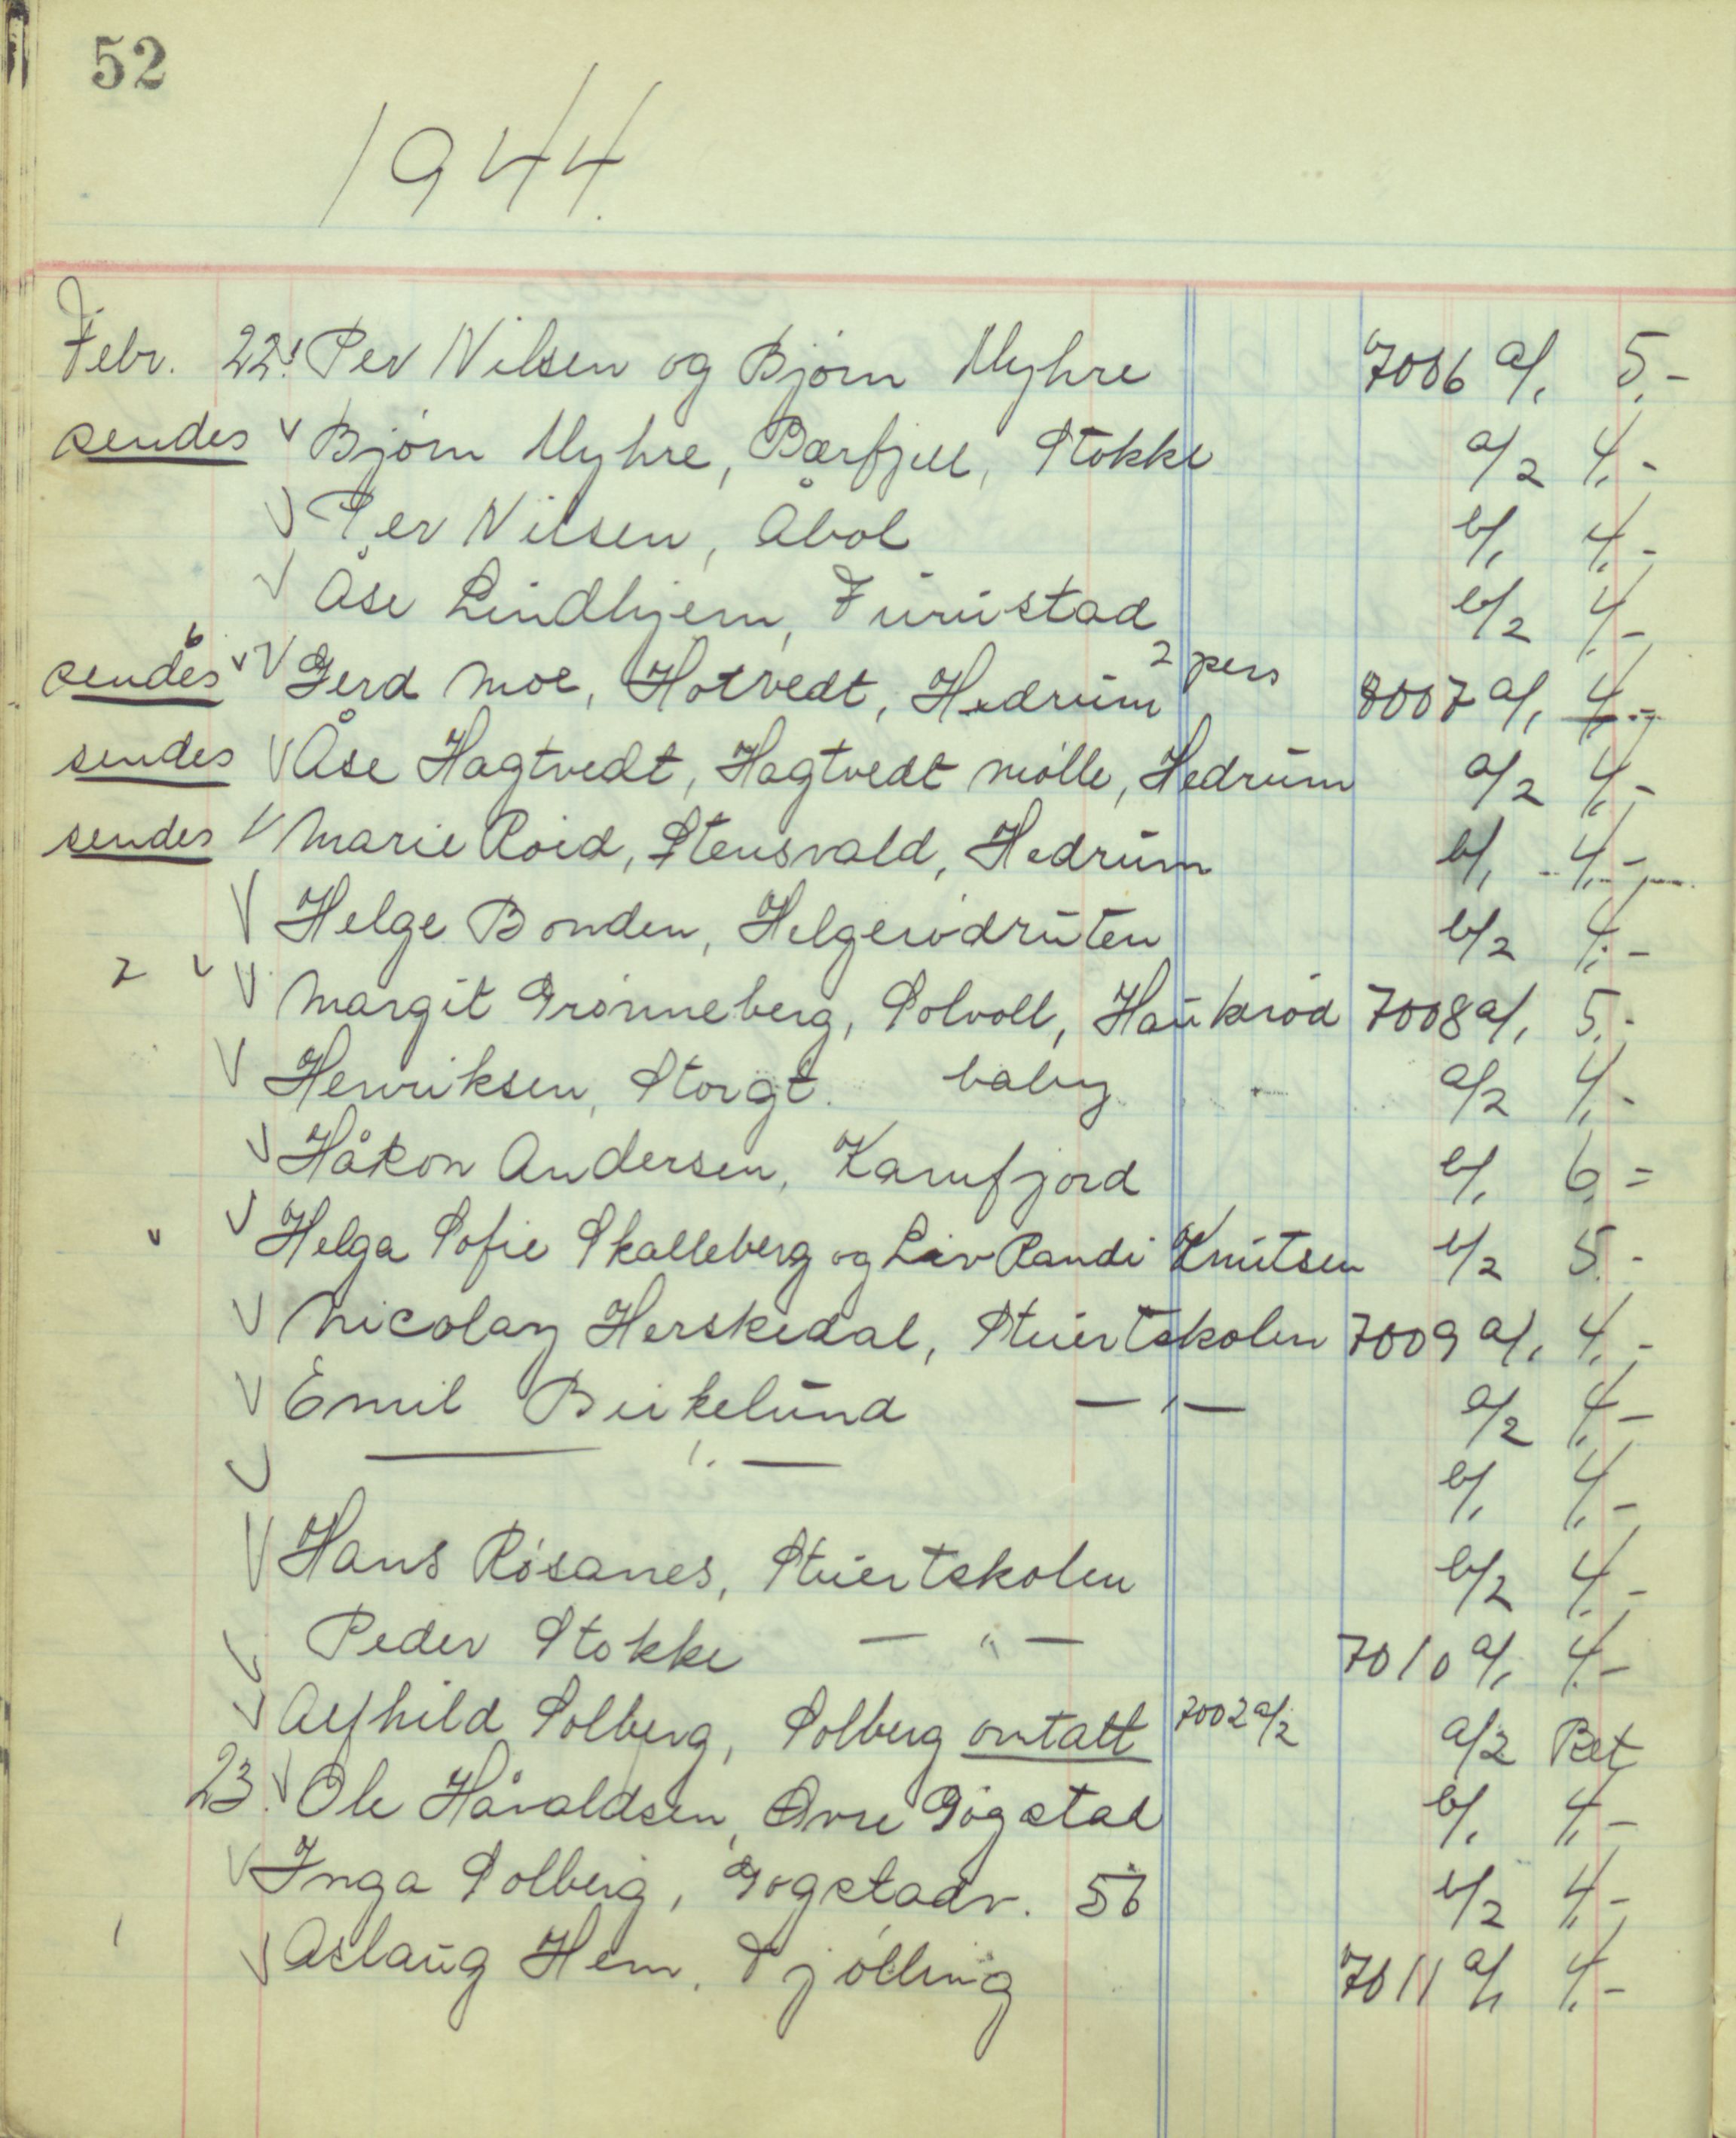 52
1944.
Febr. 22. Per Nilsen og Bjørn Myhre 7006 a/1 5.-
sendes v Bjørn Myhre, Bærfjell, Stokke a/2 4.-
v Per Nilsen, Åbol b/1 4.-
v Åse Lindhjem, Furustad b/2 4.-
sendes 6 v v Gerd Moe, Hotvedt, Hedrum 2 pers 8007 a/1 4.-
sendes v Åse Hagtvedt, Hagtvedt mølle, Hedrum a/2 4.-
sendes v Marie Roed, Stensvald, Hedrum b/1 4.-
v Helge Bonden, Helgerødruten b/2 4.-
2 v v Margit Grønneberg, Solvoll, Haukerød 7008 a/1 5.-
v Henriksen, Storgt. baby a/2 4.-
v Håkon Andersen, Kamfjord b/1 6.=
v v Helga Sofie Skalleberg og Liv Randi Knutsen b/2 5.-
v Nicolay Herskedal, Stuertskolen 7009 a/1 4.-
v Emil Birkelund — " — a/2 4.-
v — " — b/1 4.-
v Hans Røsanes, Stuertskolen b/2 4.-
v Peder Stokke — " — 7010 a/1 4.-
v Alfhild Solberg, Solberg omtatt 7002 a/2 a/2 Bet
23. v Ole Håvaldsen, Øvre Gogstad b/1 4.-
v Inga Solberg, Gogstadv. 56 b/2 4.-
1 v Aslaug Hem, Tjølling 7011 a/1 4.-